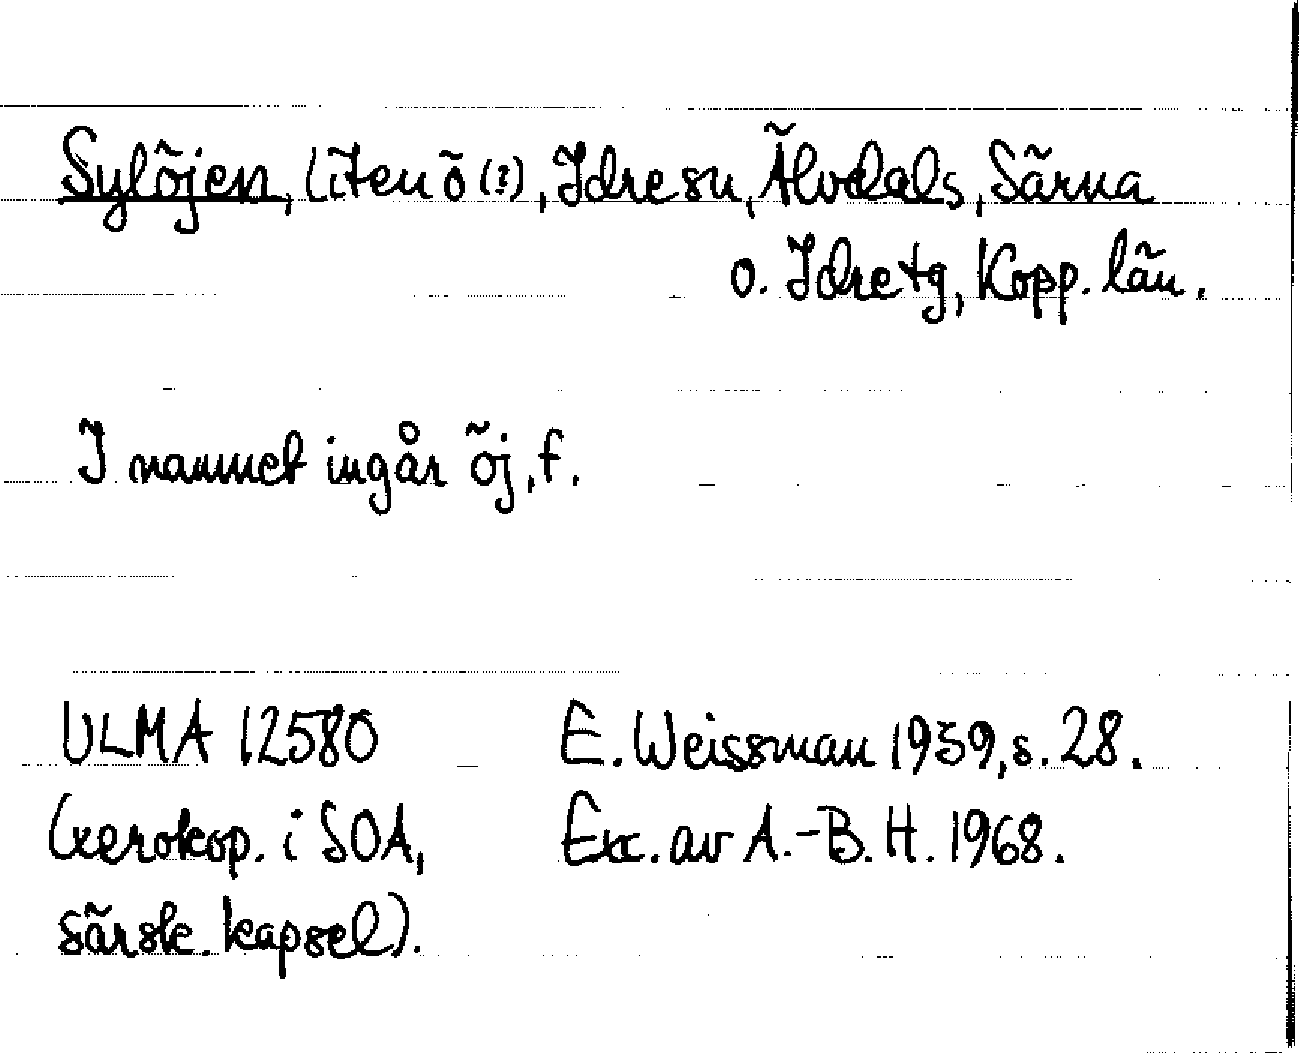 Sylöjen, liten ö (?), Idre sn, Älvdals, Särna
o. Idre tg, Kopp. län.
I namnet ingår öj, f.
ULMA 12580 E. Weissman 1959, s. 28.
(xerokop. i SOA, Exc. av A.-B. H. 1968.
särsk. kapsel).